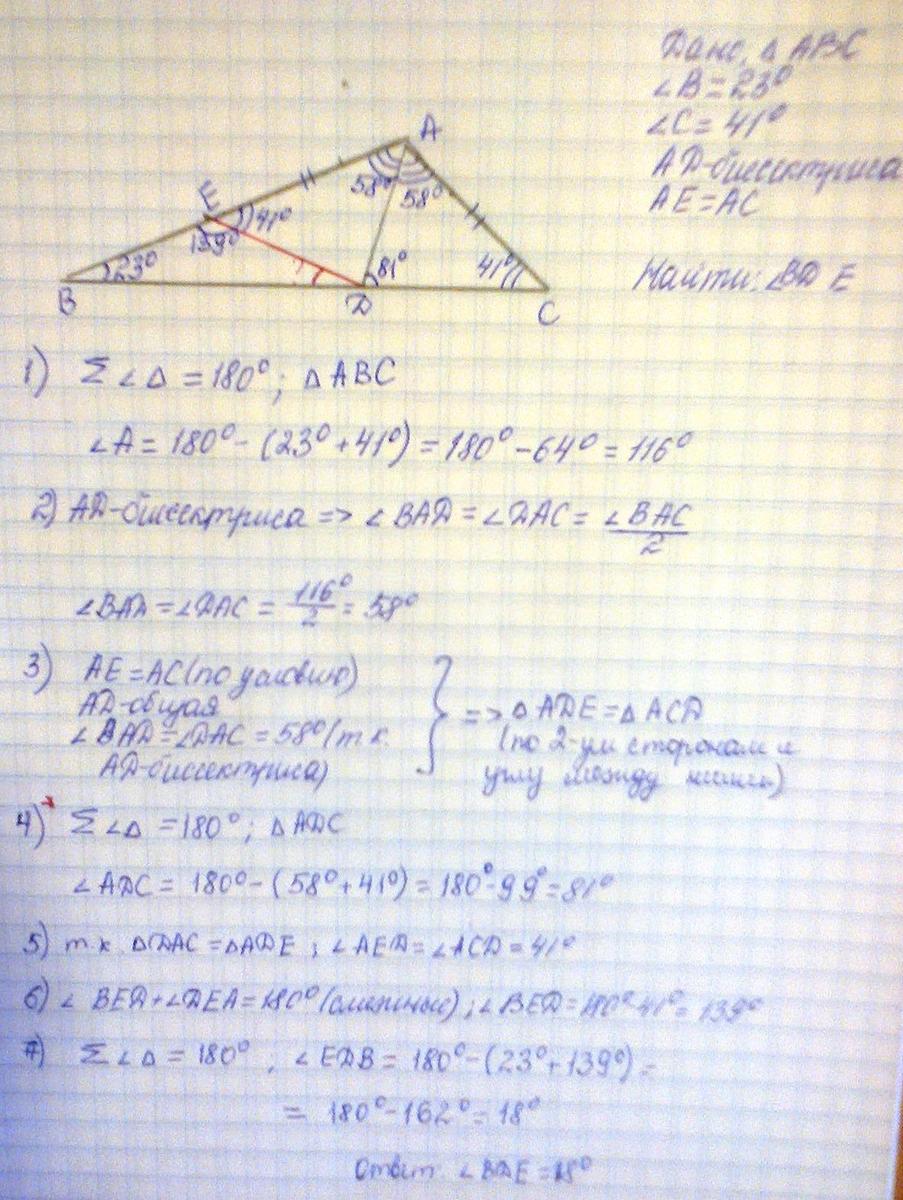 Дано, △ ABC
∠B = 23°
∠C = 41°
AD-биссектриса
AE = AC
Найти: ∠BD E
A
58° 58°
E
41°
139°
23°
81°
41°
B
D
C
1) Σ ∠ △ = 180°; △ ABC
∠A = 180° - (23° + 41°) = 180° - 64° = 116°
2) AD-биссектриса => ∠ BAD = ∠ DAC = ∠ BAC / 2
∠BAD = ∠DAC = 116° / 2 = 58°
3) AE = AC (по условию)
AD-общая
∠ BAD = ∠DAC = 58° (т.к.
AD-биссектриса)
} => △ ADE = △ ACD
(по 2-ум сторонам и
углу между ними)
4) Σ ∠ △ = 180°; △ ADC
∠ ADC = 180° - (58° + 41°) = 180° - 99° = 81°
5) т.к. △ DAC = △ ADE ; ∠ AED = ∠ ACD = 41°
6) ∠ BED + ∠DEA = 180° (смежные) ; ∠ BED = 180° - 41° = 139°
7) Σ ∠ △ = 180° ; ∠ EDB = 180° - (23° + 139°) =
= 180° - 162° = 18°
Ответ: ∠ BDE = 18°